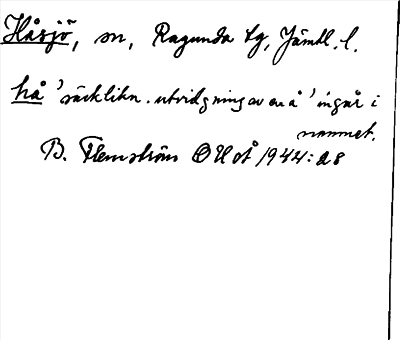 Håsjö, sn, Ragunda tg, Jämtl. l.
hå 'säcklikn. utvidgning av en å' ingår i
namnet.
B. Flemström OUoÅ 1944:28